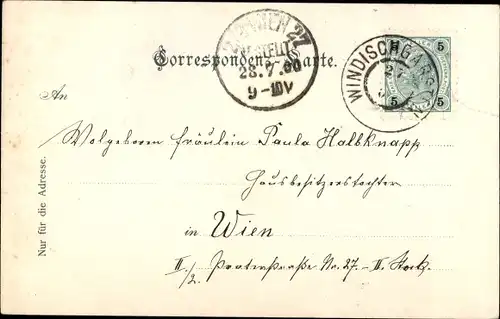 Correspondenz-Karte.
WIEN 2/
BESTELLT
28.7.00
9-10V
WINDISCHGARSTEN
5 5
5 5
An
Wolgeboren Fräulein Paula Halbknapp
Hausbesitzerstochter
in Wien
II/2. Praterstraße No. 27 - II. Stock.
Nur für die Adresse.